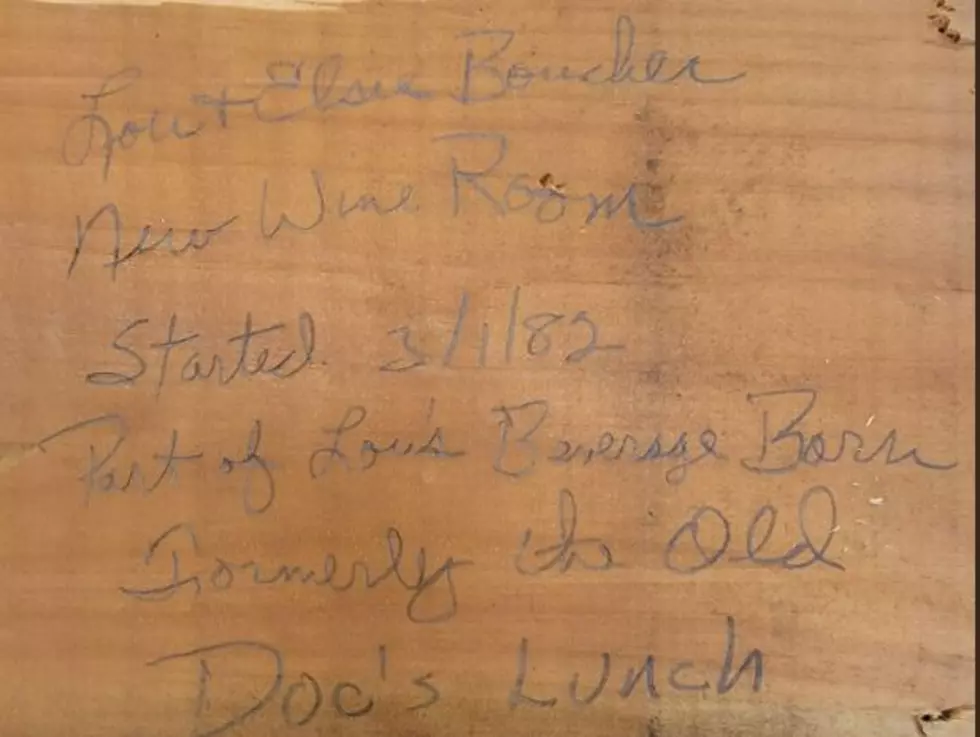 Lou + Elsie Boucher
New Wine Room
Started 3/1/82
Part of Lou's Beverage Barn
Formerly the Old
Doc's Lunch